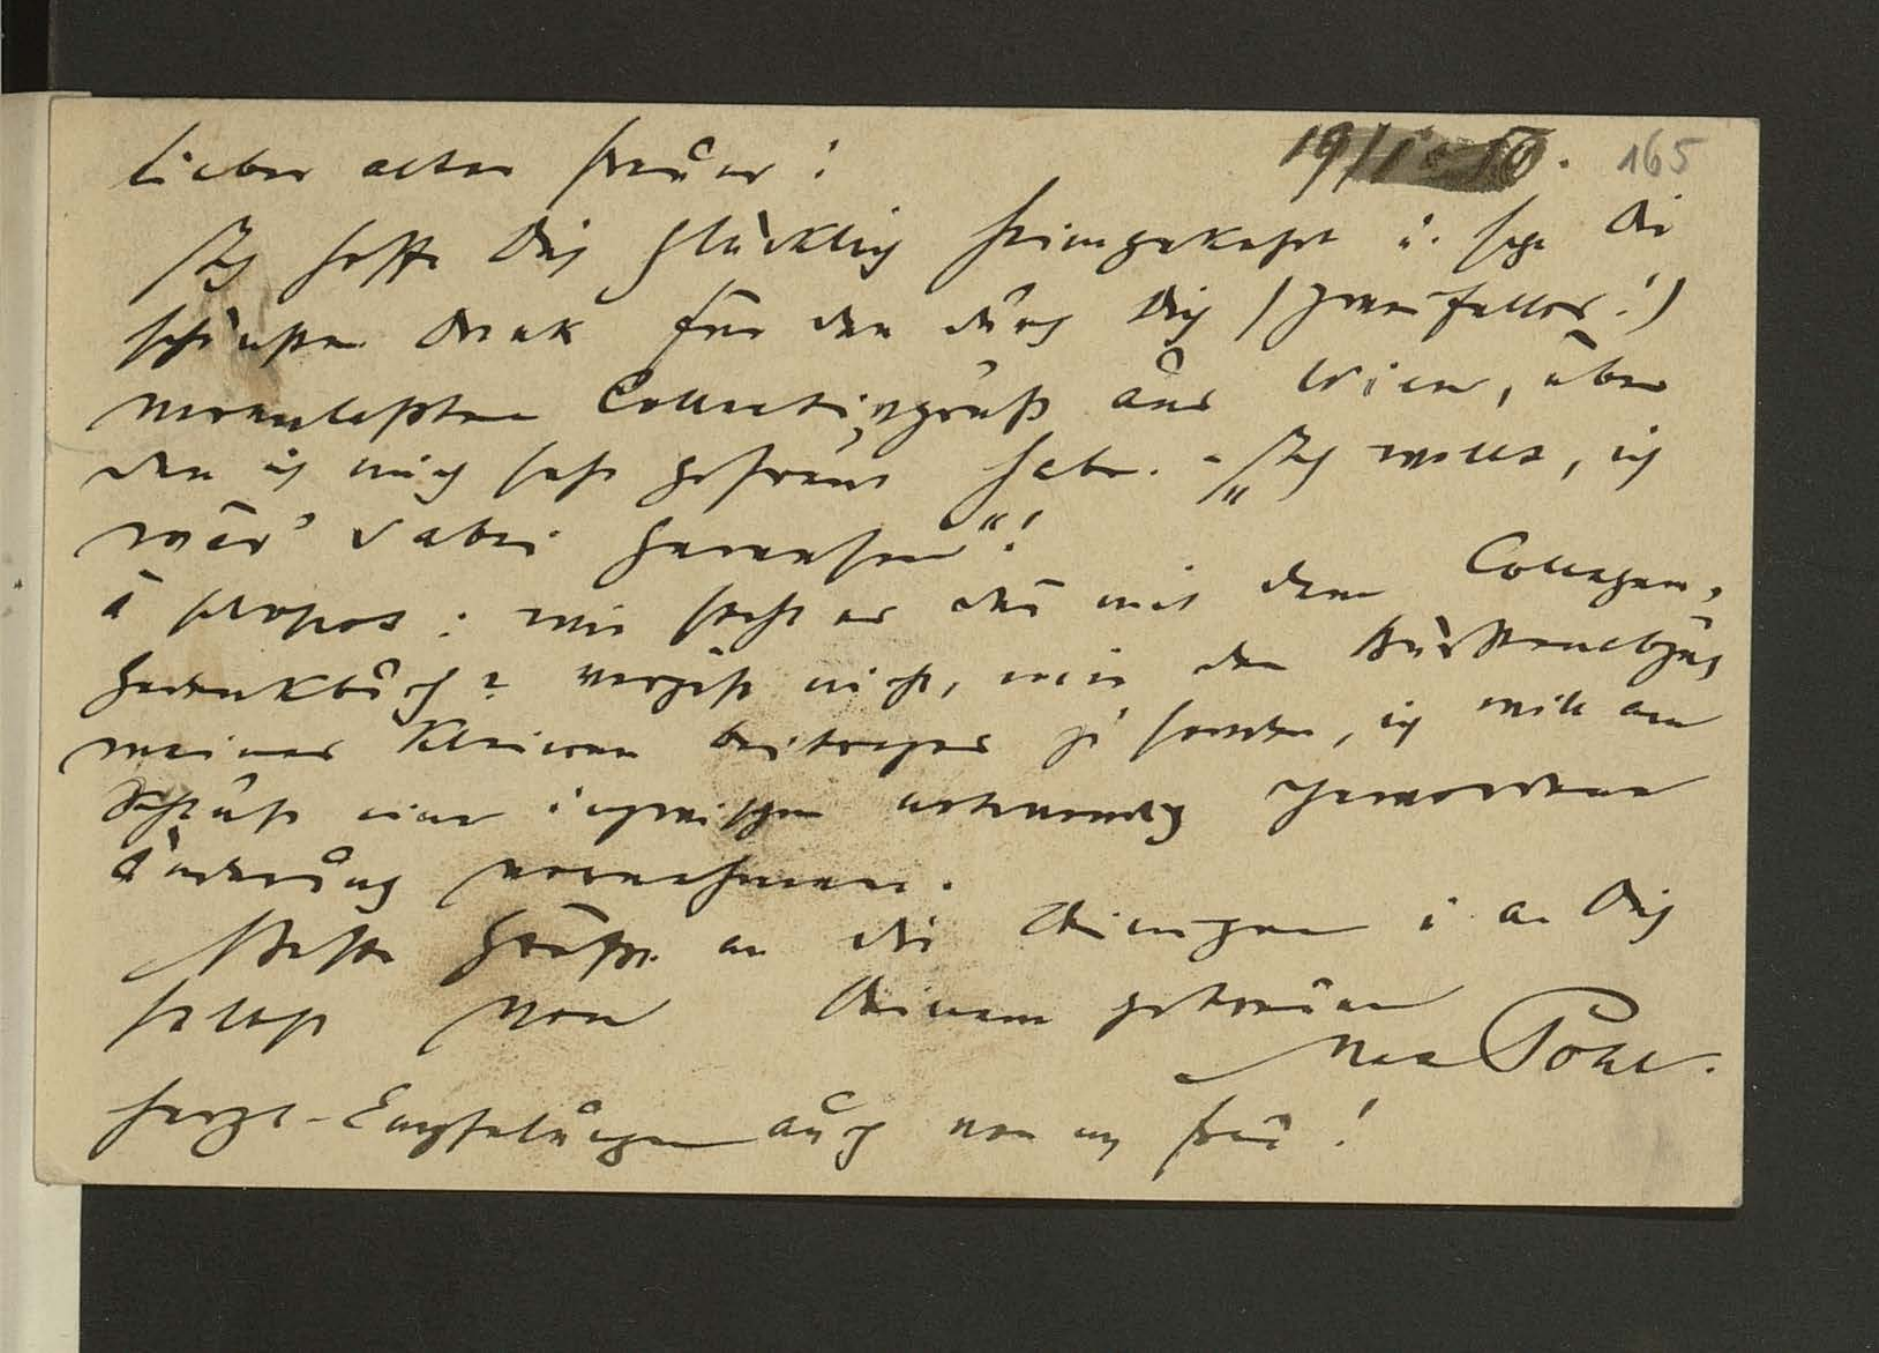 Lieber alter Freund! 19/10 165
Ich hoffe Dich glücklich heimgekehrt u. sage Dir
schönsten Dank für den durch Dich (zweifellos!)
veranlaßten Collectivgruß aus Wien, über
den ich mich sehr gefreut habe. - „Ich wollt, ich
wär' dabei gewesen“!
à propos: wie steht es denn mit dem Collegen-
Gedenkbuch? Vergiß nicht, mir den Bürstenabzug
meines kleinen Beitrages zu senden, ich will am
Schluß eine inzwischen notwendig gewordene
Änderung vornehmen.
Beste Grüße an die Deinigen u. an Dich
selbst von Deinem getreuen
Max Pohl.
Herzl. Empfelungen auch von m. Frau!